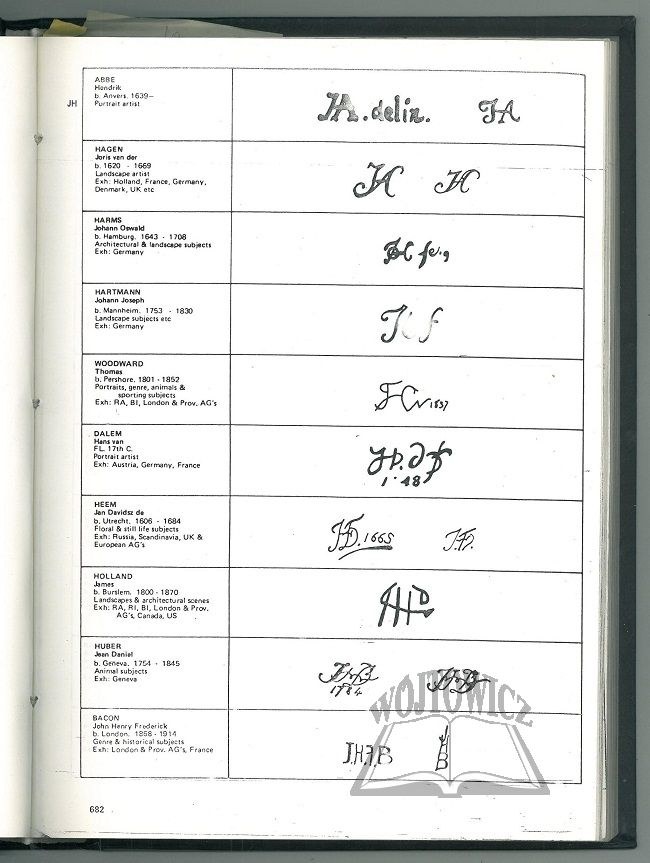 JH
ABBE
Hendrik
b. Anvers. 1639–
Portrait artist
JA. delin. JA
HAGEN
Joris van der
b. 1620 - 1669
Landscape artist
Exh: Holland, France, Germany,
Denmark, UK etc
JH JH
HARMS
Johann Oswald
b. Hamburg. 1643 - 1708
Architectural & landscape subjects
Exh: Germany
HARTMANN
Johann Joseph
b. Mannheim. 1753 - 1830
Landscape subjects etc
Exh: Germany
WOODWARD
Thomas
b. Pershore. 1801 - 1852
Portraits, genre, animals &
sporting subjects
Exh: RA, BI, London & Prov. AG's
1837
DALEM
Hans van
FL. 17th C.
Portrait artist
Exh: Austria, Germany, France
HEEM
Jan Davidsz de
b. Utrecht. 1606 - 1684
Floral & still life subjects
Exh: Russia, Scandinavia, UK &
European AG's
1665
HOLLAND
James
b. Burslem. 1800 - 1870
Landscapes & architectural scenes
Exh: RA, RI, BI, London & Prov.
AG's, Canada, US
HUBER
Jean Daniel
b. Geneva. 1754 - 1845
Animal subjects
Exh: Geneva
1784
BACON
John Henry Frederick
b. London. 1868 - 1914
Genre & historical subjects
Exh: London & Prov. AG's, France
J.H.F.B
WÓJTOWICZ
682